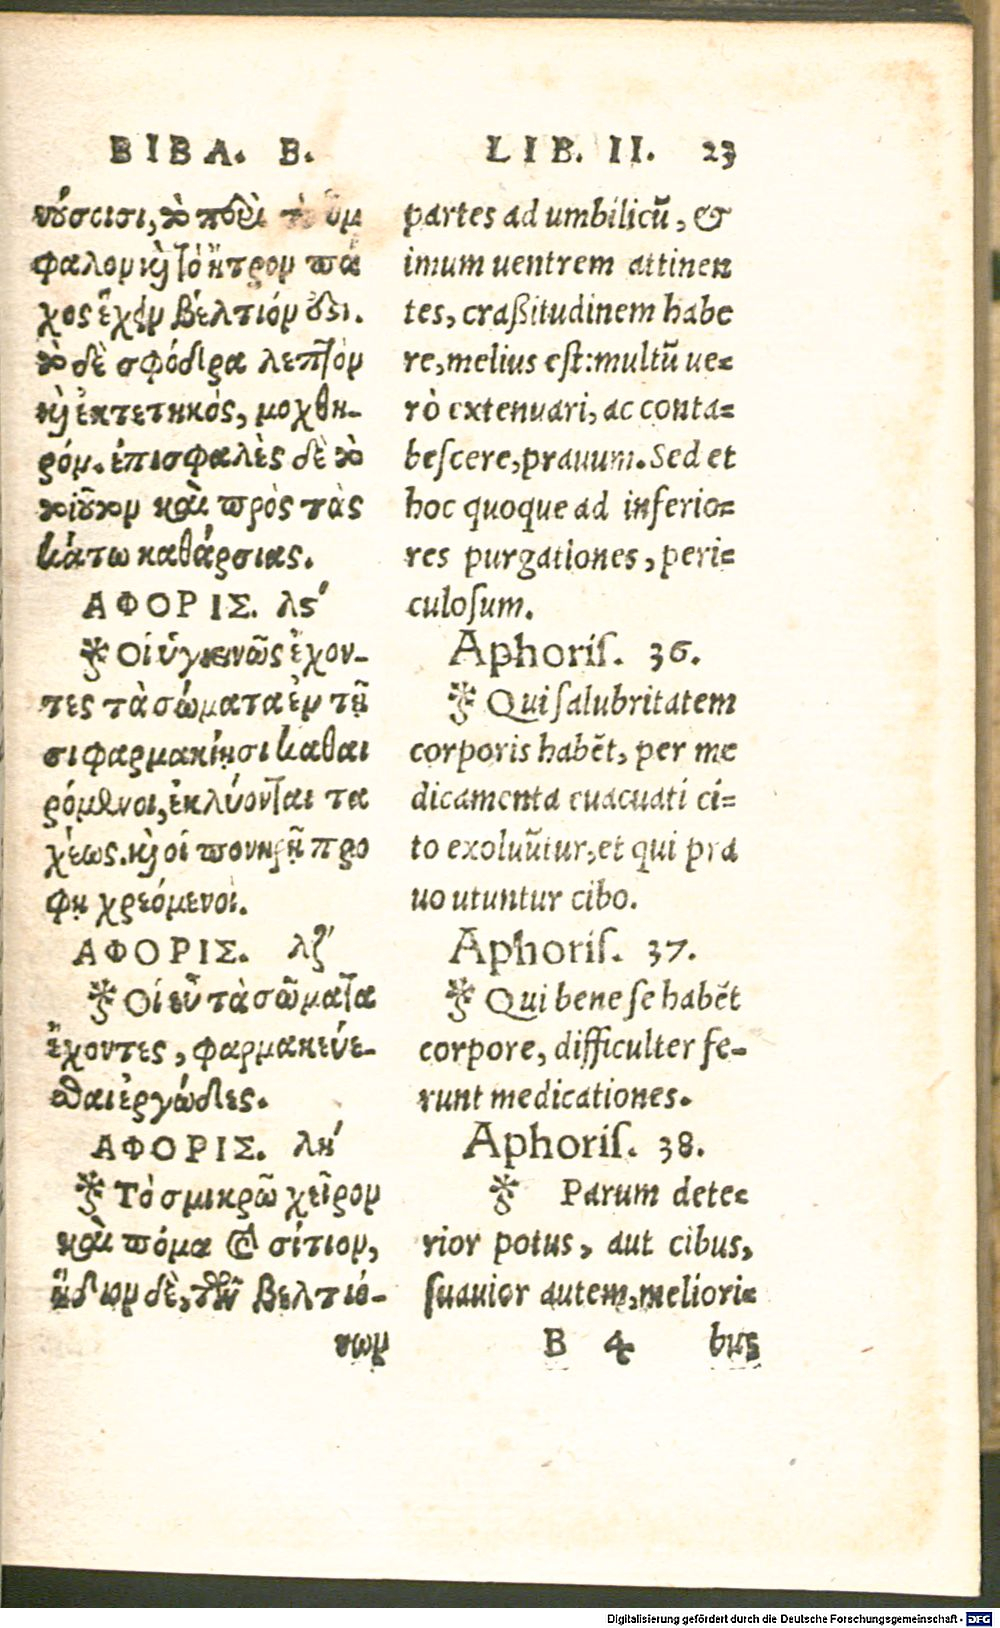 ΒΙΒΛ. Β.
νούσοισι, τὸ περὶ τὸν ὀμ
φαλὸν καὶ τὸ ἦτρον πά
χος ἔχειν βέλτιόν ἐστι.
τὸ δὲ σφόδρα λεπτὸν
καὶ ἐκτετηκός, μοχθη-
ρόν. ἐπισφαλὲς δὲ τὸ
τοιοῦτον καὶ πρὸς τὰς
κάτω καθάρσιας.
ΑΦΟΡΙΣ. λϛʹ
Οἱ ὑγιεινῶς ἔχον-
τες τὰ σώματα ἐν τῇ
σι φαρμακίῃσι καθαι
ρόμενοι, ἐκλύονται τα
χέως. καὶ οἱ πονηρῇ τρο
φῇ χρεόμενοι.
ΑΦΟΡΙΣ. λζʹ
Οἱ εὖ τὰ σώματα
ἔχοντες, φαρμακεύε-
σθαι ἐργώδεες.
ΑΦΟΡΙΣ. ληʹ
Τὸ σμικρῶ χεῖρον
καὶ πόμα καὶ σίτιον,
ἥδιον δὲ, τῶν βελτιό-
νων
LIB. II. 23
partes ad umbilicū, &
imum uentrem attinen
tes, craßitudinem habe
re, melius est: multū ue=
rò extenuari, ac conta=
bescere, prauum. Sed et
hoc quoque ad inferio=
res purgationes, peri=
culosum.
Aphoris. 36.
Qui salubritatem
corporis habēt, per me
dicamenta euacuati ci=
to exoluūtur, et qui pra
uo utuntur cibo.
Aphoris. 37.
Qui bene se habēt
corpore, difficulter fe-
runt medicationes.
Aphoris. 38.
Parum dete=
rior potus, aut cibus,
suauior autem, meliori=
B 4 bus
Digitalisierung gefördert durch die Deutsche Forschungsgemeinschaft - DFG